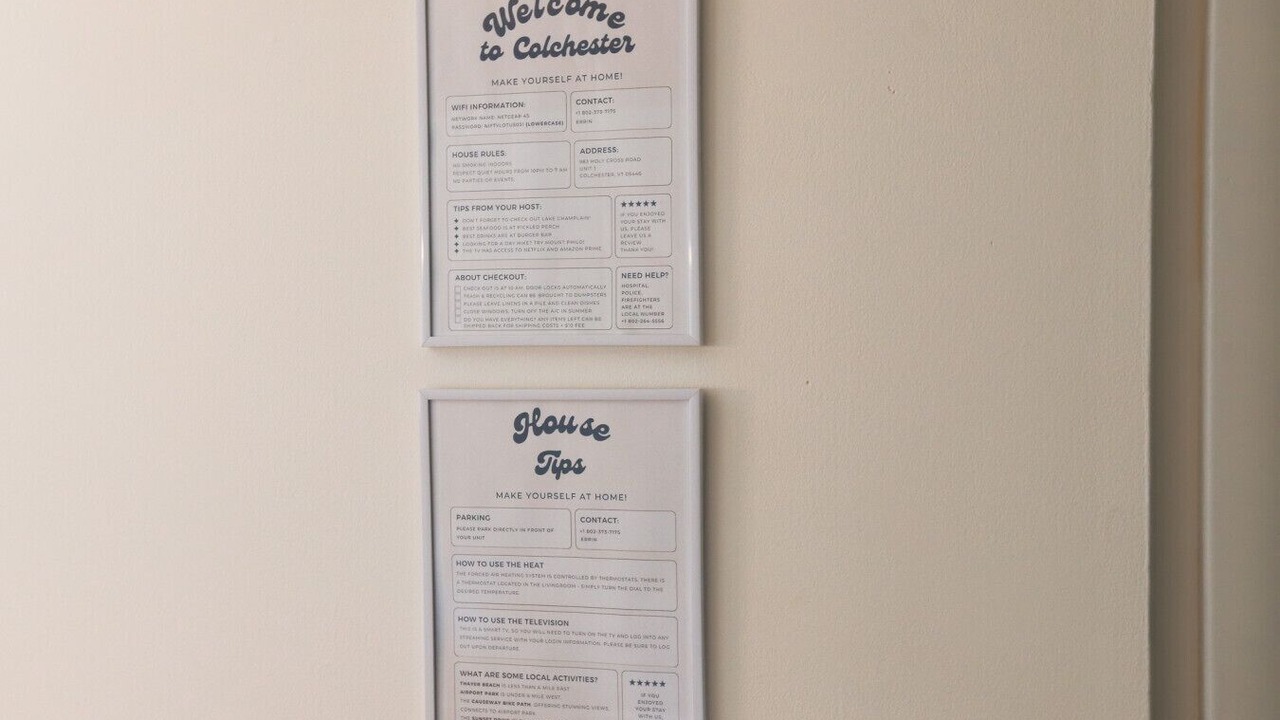 Welcome
to Colchester
MAKE YOURSELF AT HOME!
WIFI INFORMATION:
NETWORK NAME: NETGEAR 45
PASSWORD: (LOWERCASE)
CONTACT:
ERRIN
HOUSE RULES:
NO SMOKING INDOORS
RESPECT QUIET HOURS FROM 10PM TO 7 AM
NO PARTIES OR EVENTS.
ADDRESS:
HOLY CROSS ROAD
UNIT
COLCHESTER,
TIPS FROM YOUR HOST:
DON'T FORGET TO CHECK OUT LAKE CHAMPLAIN!
BEST SEAFOOD IS AT PICKLED PERCH
BEST DRINKS ARE AT BURGER BAR
LOOKING FOR A DAY HIKE? TRY MOUNT PHILO!
THE TV HAS ACCESS TO NETFLIX AND AMAZON PRIME
★★★★★
IF YOU ENJOYED
YOUR STAY WITH
US, PLEASE
LEAVE US A
REVIEW.
THANK YOU!
ABOUT CHECKOUT:
CHECK OUT IS AT 10 AM. DOOR LOCKS AUTOMATICALLY
TRASH & RECYCLING CAN BE BROUGHT TO DUMPSTERS
PLEASE LEAVE LINENS IN A PILE AND CLEAN DISHES
CLOSE WINDOWS, TURN OFF THE A/C IN SUMMER
DO YOU HAVE EVERYTHING? ANY ITEMS LEFT CAN BE
SHIPPED BACK FOR SHIPPING COSTS + $10 FEE
NEED HELP?
HOSPITAL,
POLICE,
FIREFIGHTERS
ARE AT THE
LOCAL NUMBER
House
Tips
MAKE YOURSELF AT HOME!
PARKING
PLEASE PARK DIRECTLY IN FRONT OF
YOUR UNIT
CONTACT:
ERRIN
HOW TO USE THE HEAT
THE FORCED AIR HEATING SYSTEM IS CONTROLLED BY THERMOSTATS. THERE IS
A THERMOSTAT LOCATED IN THE LIVINGROOM - SIMPLY TURN THE DIAL TO THE
DESIRED TEMPERATURE.
HOW TO USE THE TELEVISION
THIS IS A SMART TV, SO YOU WILL NEED TO TURN ON THE TV AND LOG INTO ANY
STREAMING SERVICE WITH YOUR LOGIN INFORMATION. PLEASE BE SURE TO LOG
OUT UPON DEPARTURE.
WHAT ARE SOME LOCAL ACTIVITIES?
THAYER BEACH IS LESS THAN A MILE EAST
AIRPORT PARK IS UNDER A MILE WEST.
THE CAUSEWAY BIKE PATH, OFFERING STUNNING VIEWS,
CONNECTS TO AIRPORT PARK.
THE SUNSET
★★★★★
IF YOU
ENJOYED
YOUR STAY
WITH US,